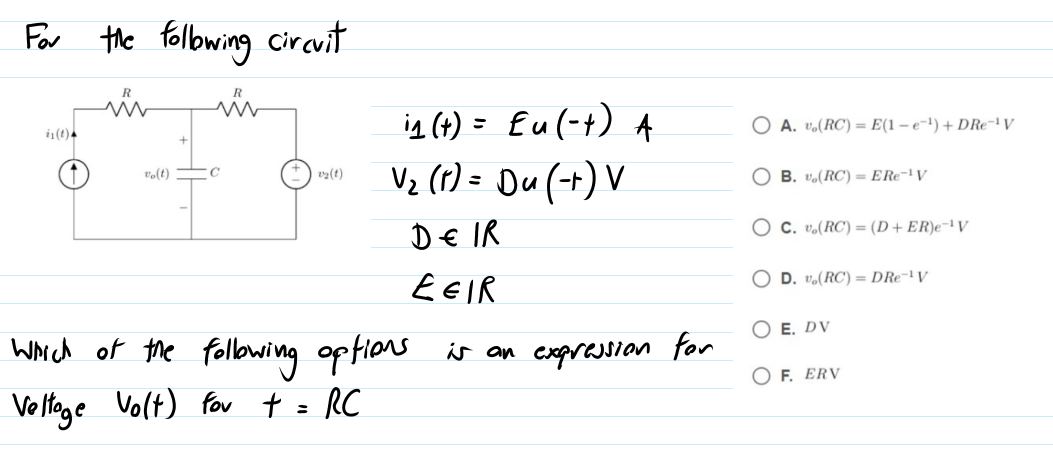 For the following circuit
R R
i₁(t)
+
v₀(t) C + v₂(t)
−
−
i1(t) = Eu(-t) A
V2(t) = Du(-t) V
D ∈ IR
E ∈ IR
Which of the following options is an expression for
Voltage Vo(t) for t = RC
A. vₒ(RC) = E(1 − e⁻¹) + DRe⁻¹ V
B. vₒ(RC) = ERe⁻¹ V
C. vₒ(RC) = (D + ER)e⁻¹ V
D. vₒ(RC) = DRe⁻¹ V
E. DV
F. ERV